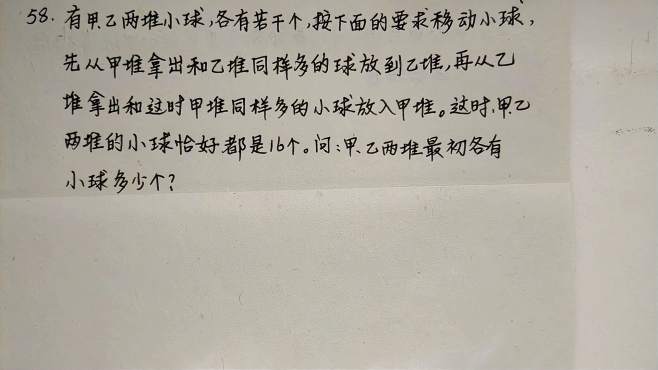 58. 有甲.乙两堆小球,各有若干个,按下面的要求移动小球,
先从甲堆拿出和乙堆同样多的球放到乙堆,再从乙
堆拿出和这时甲堆同样多的小球放入甲堆。这时,甲.乙
两堆的小球恰好都是16个。问:甲.乙两堆最初各有
小球多少个?